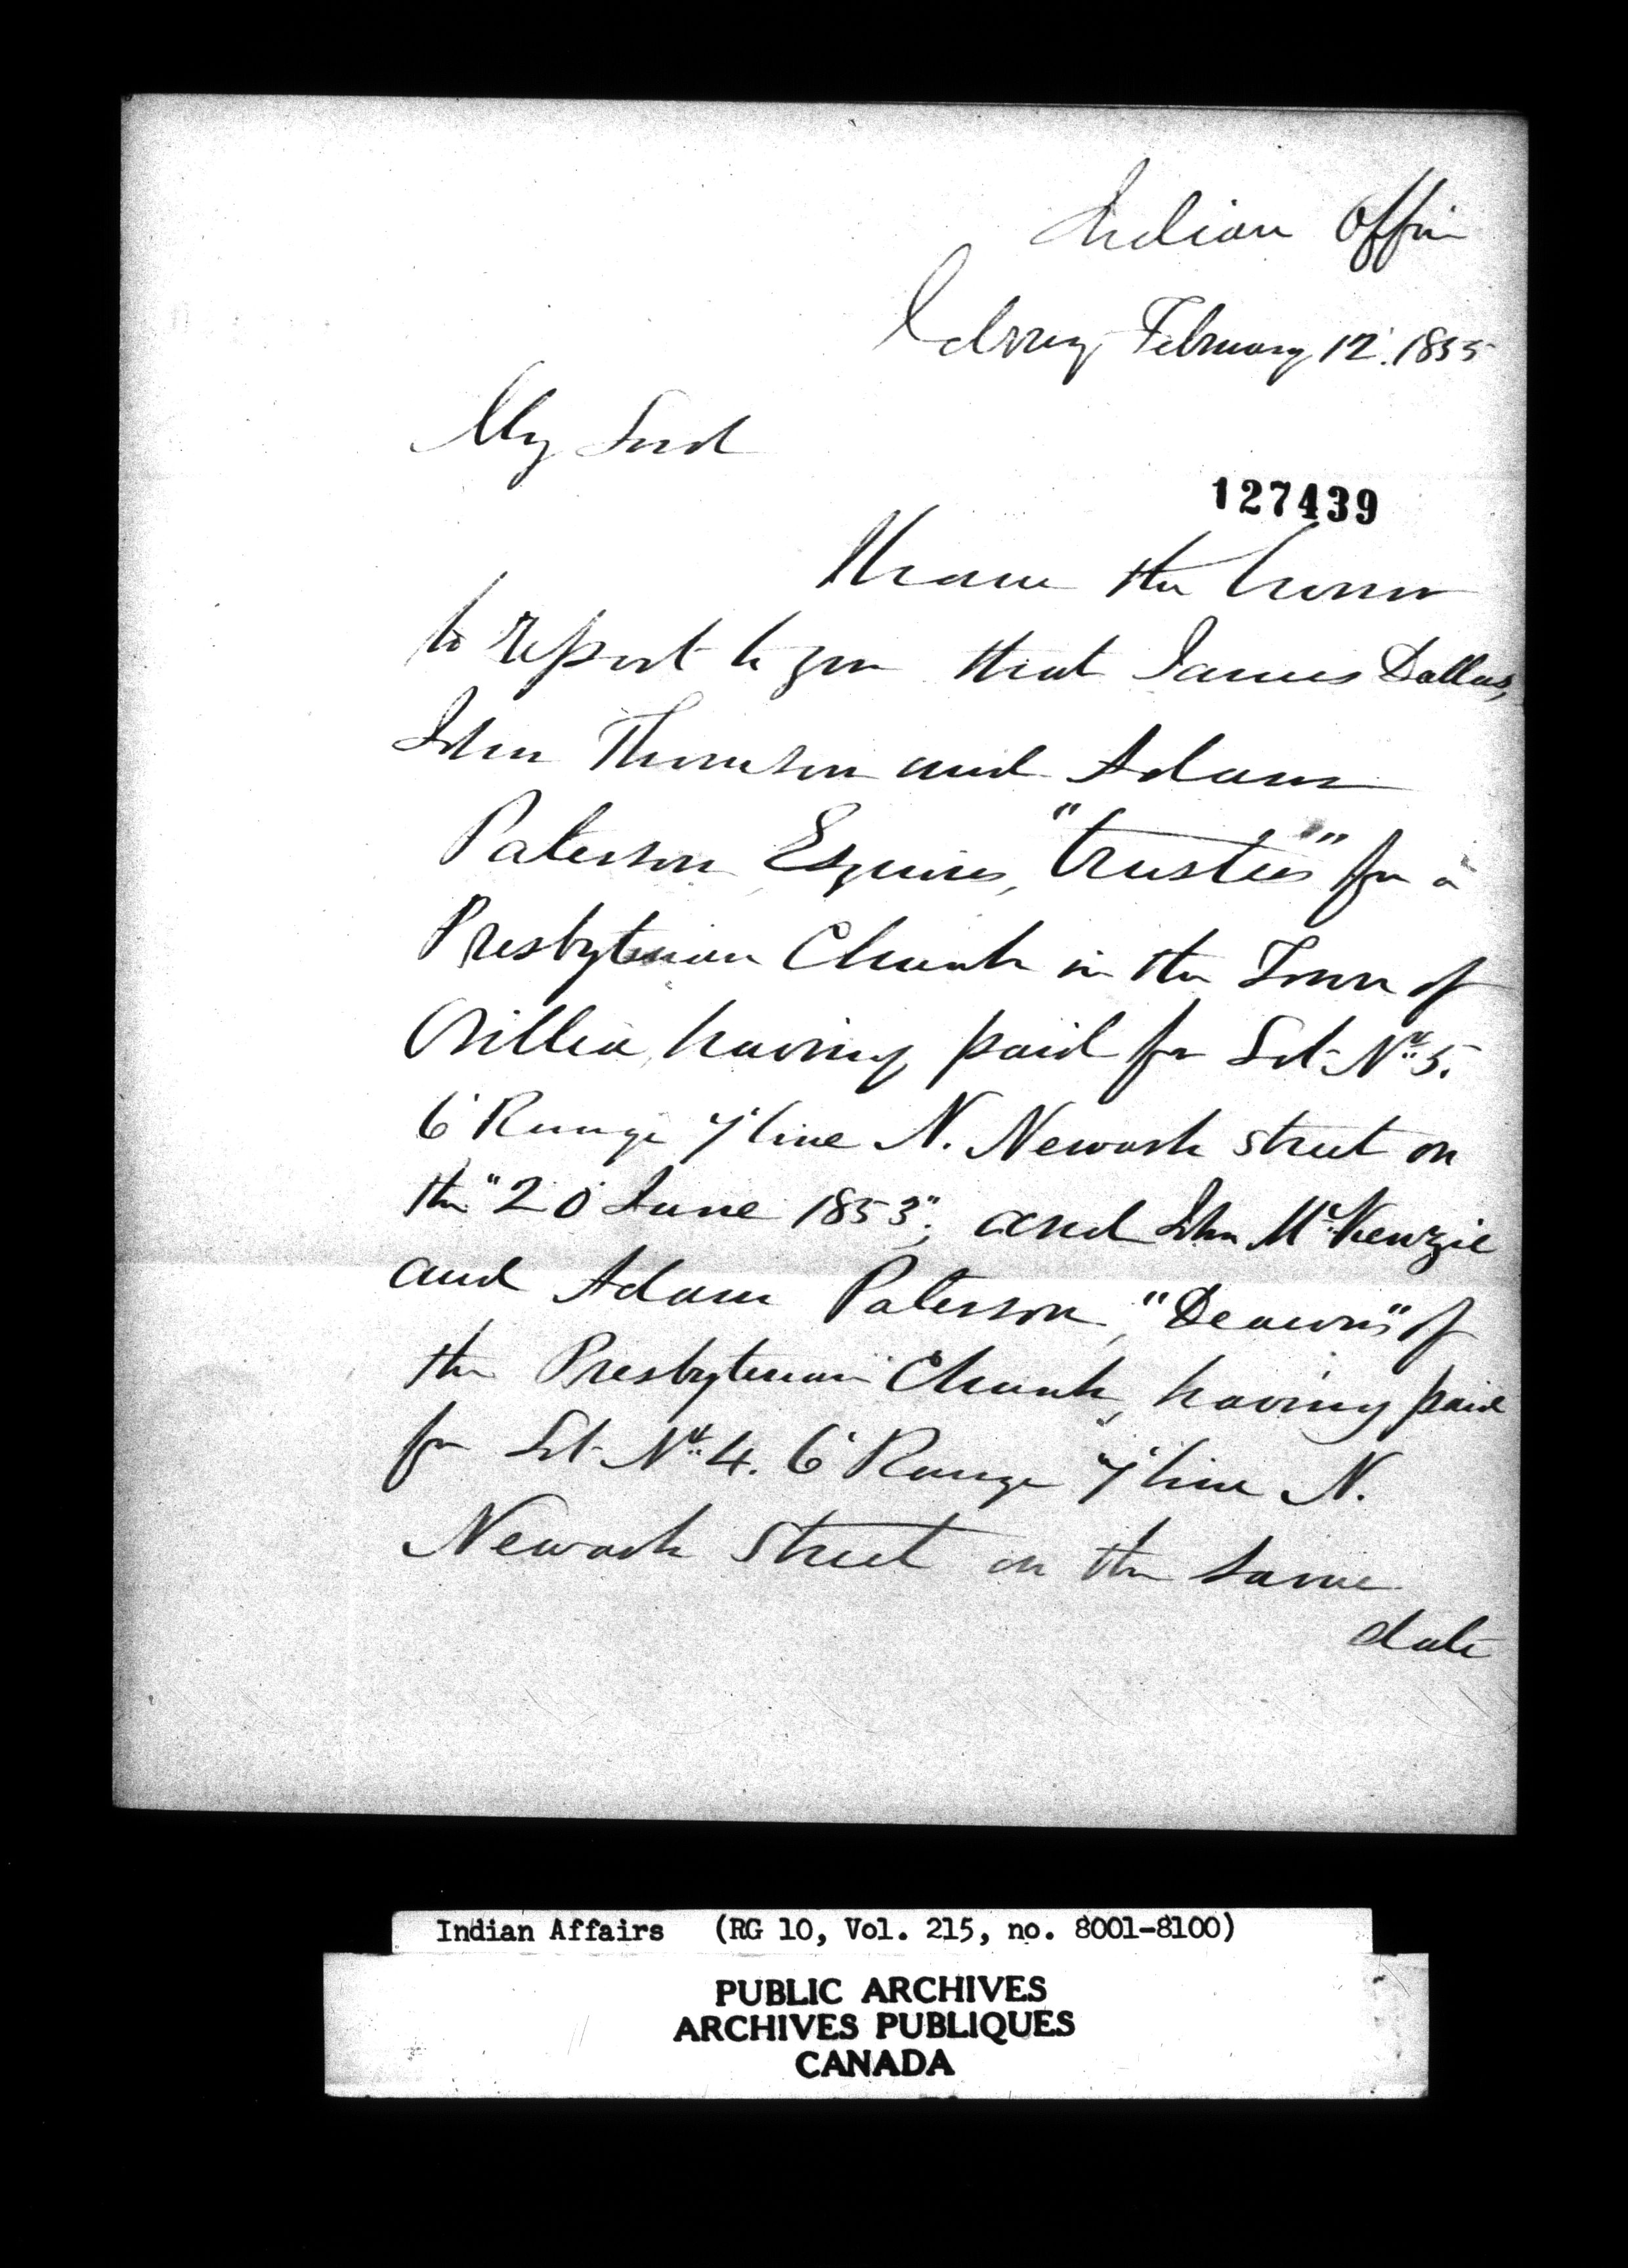 Indian Office
February 12. 1855
My Lord
127439
I have the honor
to report to you that James Dallas,
John Thomson and Adam
Paterson Esquires, "trustees" for a
Presbyterian Church in the Town of
Orillia, having paid for Lot No. 5.
6 Range 7 line N. Newark street on
the "20 June 1853", and John McKenzie
and Adam Paterson, "Deacons" of
the Presbyterian Church, having paid
for Lot No. 4. 6 Range 7 line N.
Newark Street on the same
date
Indian Affairs (RG 10, Vol. 215, no. 8001-8100)
PUBLIC ARCHIVES
ARCHIVES PUBLIQUES
CANADA